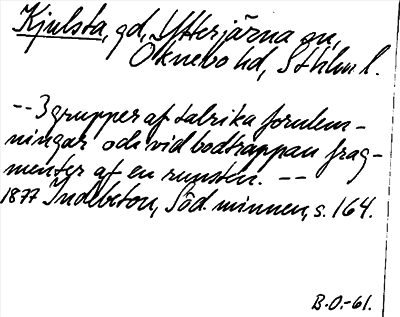 Kjulsta, gd, Ytterjärna sn,
Öknebo hd, Sthlm l.
-- 3 grupper af talrika fornlem-
ningar och vid bodtrappan frag-
menter af en runsten. --
1877 Indebetou, Söd. minnen, s. 164.
B.O.-61.